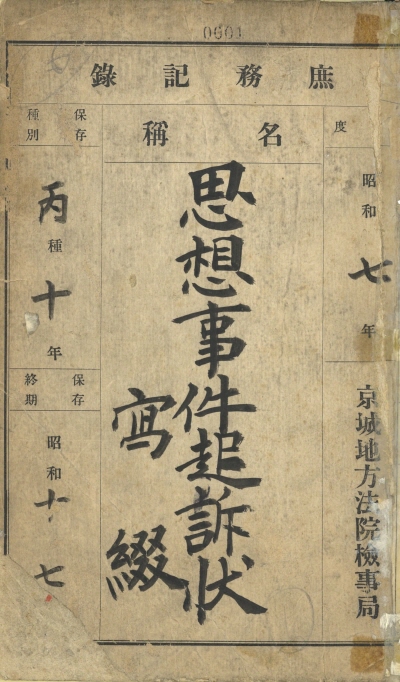 0601
庶務記錄
度
昭和七年
京城地方法院檢事局
名稱
思想事件起訴狀
寫綴
保存種別
丙種十年
保存終期
昭和十七